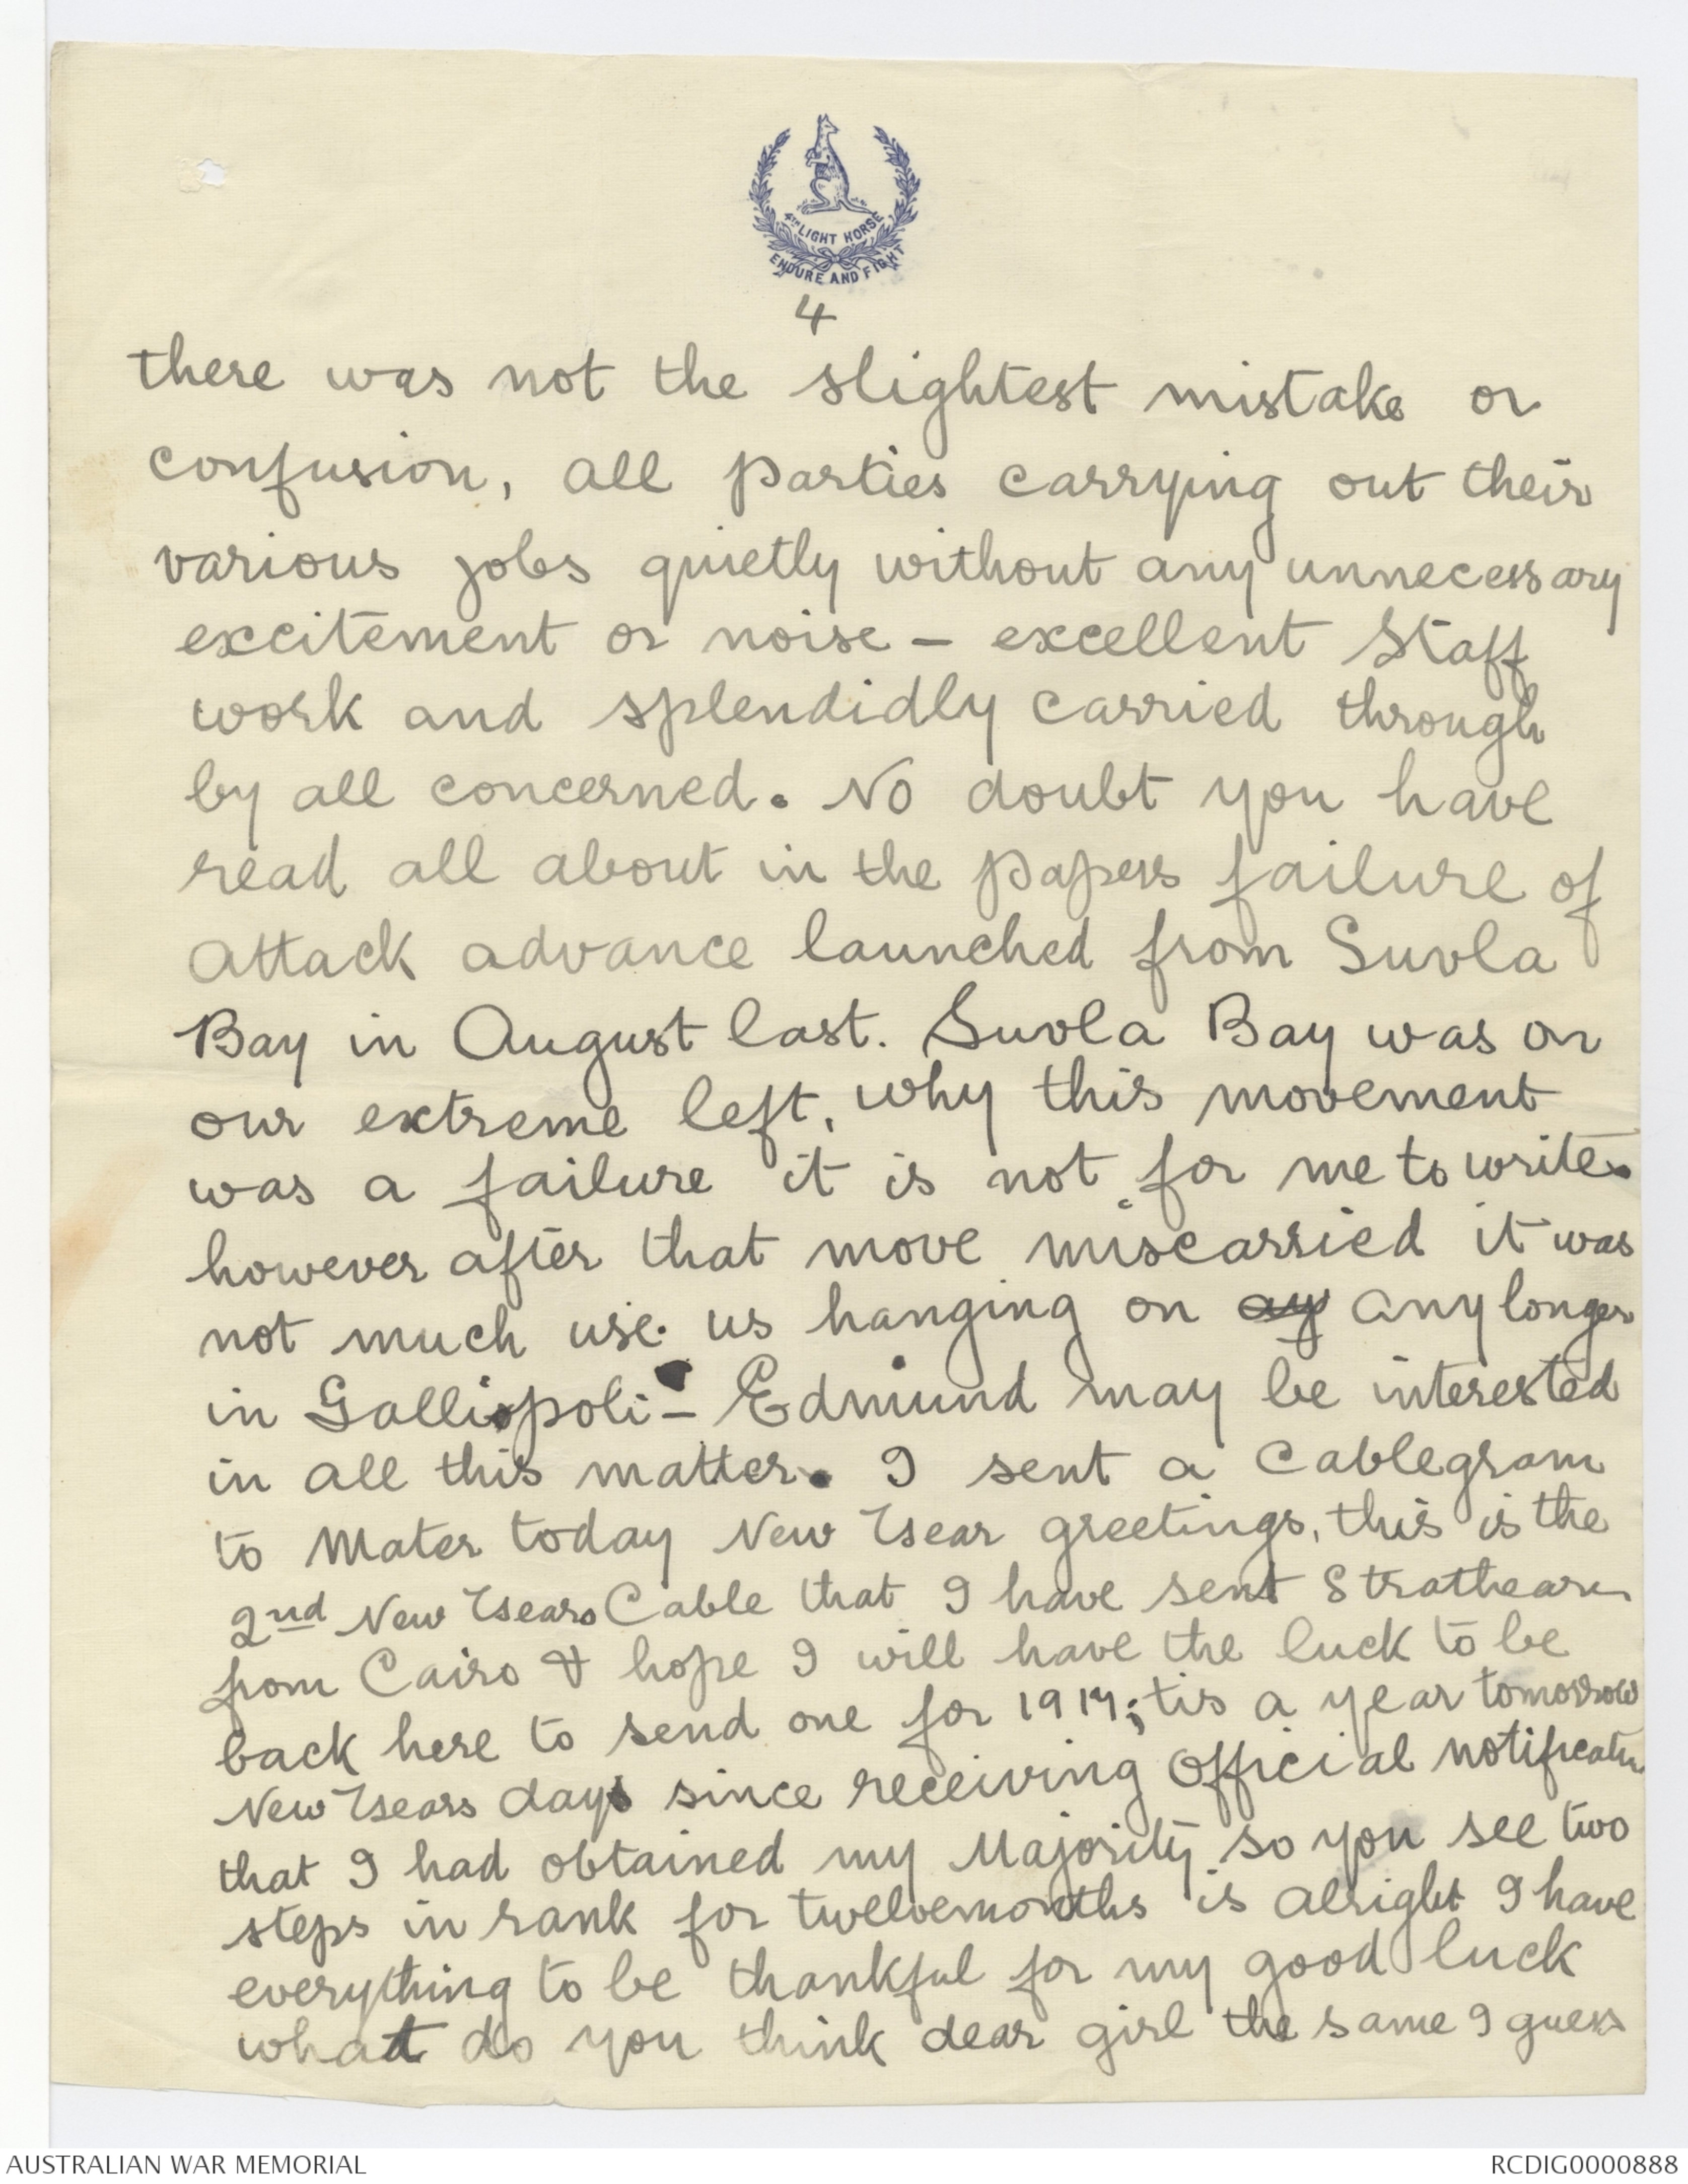 4TH LIGHT HORSE
ENDURE AND FIGHT
4
there was not the slightest mistake or
confusion, all parties carrying out their
various jobs quietly without any unnecessary
excitement or noise – excellent Staff
work and splendidly carried through
by all concerned. No doubt you have
read all about in the papers failure of
attack advance launched from Suvla
Bay in August last. Suvla Bay was on
our extreme left, why this movement
was a failure it is not for me to write.
however after that move miscarried it was
not much use us hanging on ay any longer
in Galliopoli – Edmund may be interested
in all this matter. I sent a cablegram
to Mater today New Year greetings, this is the
2nd New Years Cable that I have sent Strathearn
from Cairo & hope I will have the luck to be
back here to send one for 1917; tis a year tomorrow
New Years days since receiving Official notification
that I had obtained my Majority so you see two
steps in rank for twelvemonths is alright I have
everything to be thankful for my good luck
what do you think dear girl the same I guess
AUSTRALIAN WAR MEMORIAL
RCDIG0000888